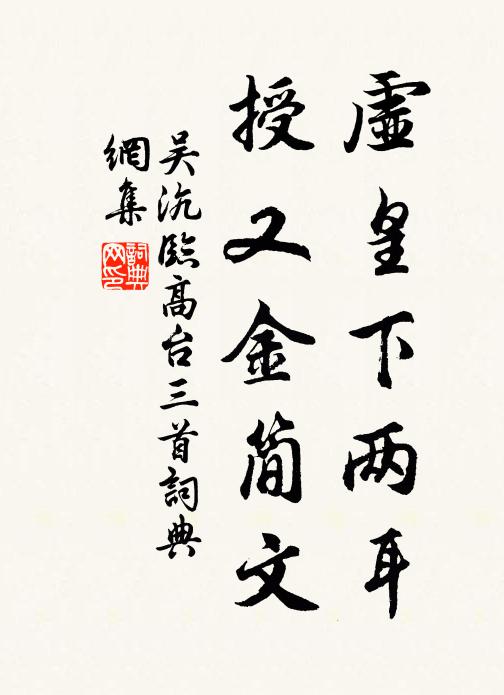 虚皇下两耳
授又金简文
吴沆臨高台三首詞典
網集
詞典網印